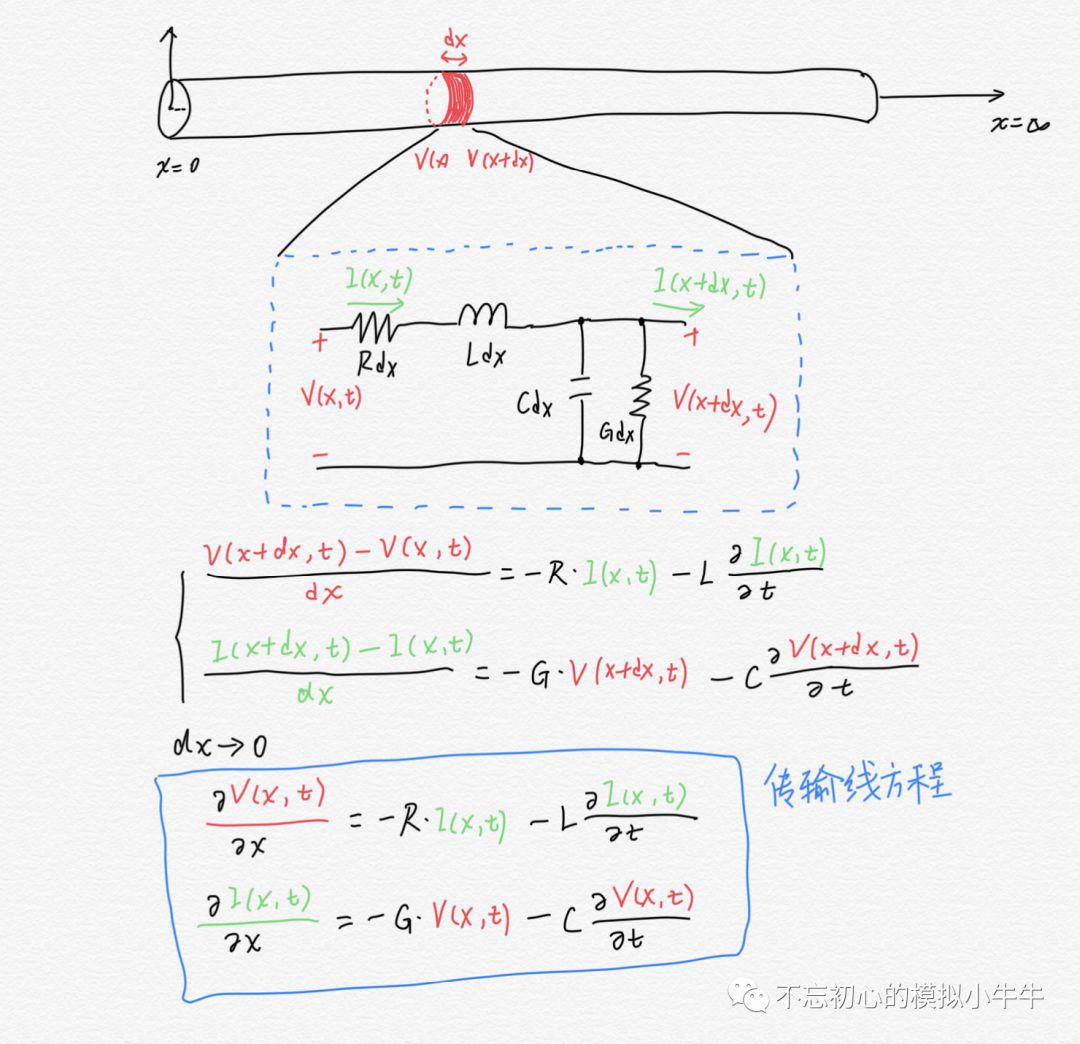 dx
x=∞
x=0
V(x) V(x+dx)
I(x,t) I(x+dx,t)
+ +
Rdx Ldx
V(x,t) Cdx Gdx V(x+dx,t)
- -
V(x+dx,t)-V(x,t)/dx = -R·I(x,t) - L ∂I(x,t)/∂t
I(x+dx,t)-I(x,t)/dx = -G·V(x+dx,t) - C ∂V(x+dx,t)/∂t
dx→0
传输线方程
∂V(x,t)/∂x = -R·I(x,t) - L ∂I(x,t)/∂t
∂I(x,t)/∂x = -G·V(x,t) - C ∂V(x,t)/∂t
不忘初心的模拟小牛牛